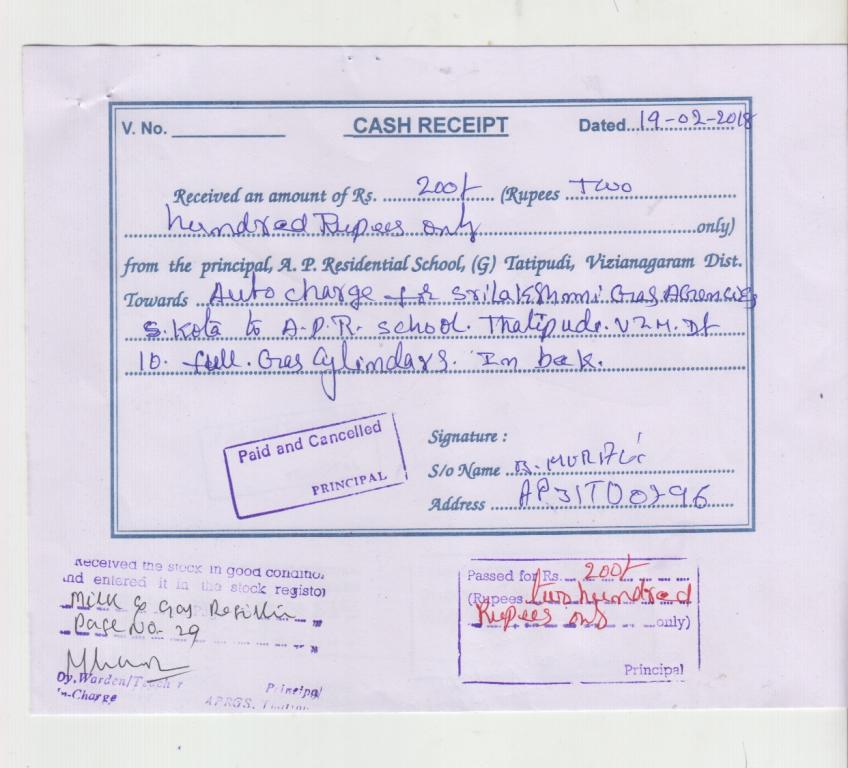 V. No. ____________ CASH RECEIPT Dated..19-02-2018
Received an amount of Rs. ....200/- (Rupees Two
hundred Rupees only ....only)
from the principal, A. P. Residential School, (G) Tatipudi, Vizianagaram Dist.
Towards ..Auto charge for srilakshmi Gas Agencies
S. Kota to A.P.R. school. Thatipudi. VZM. Dt
10. full. Gas Cylindars. In back.
Paid and Cancelled
PRINCIPAL
Signature :
S/o Name B. MURALi
Address AP31TD0296
Received the stock in good conditio
and entered it in the stock registo
Milk & Gas Refillin
Page No- 29
Dy.Warden/Teach r Principal
In-Charge APRGS.
Passed for Rs. 200/-
(Rupees two hundred
Rupees only only)
Principal